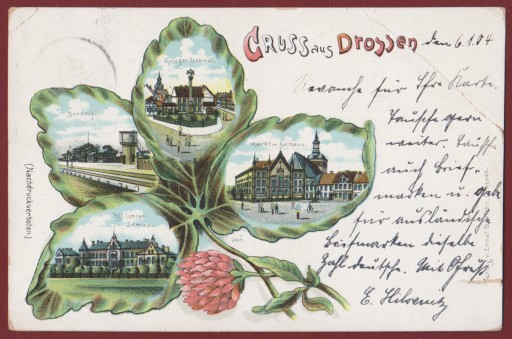 GRUSS aus Drossen
den 6.1.04
Kriegerdenkmal
Bahnhof
Markt m. Rathaus
Kgl. Lehrer
Seminar
(Nachdruck verboten)
Revanche für Ihre Karte.
Tausche gern
weiter.
auch Brief-
marken u. gebe
für ausländische
Briefmarken dieselbe
Zahl deutsche. Mit Gruß
E.